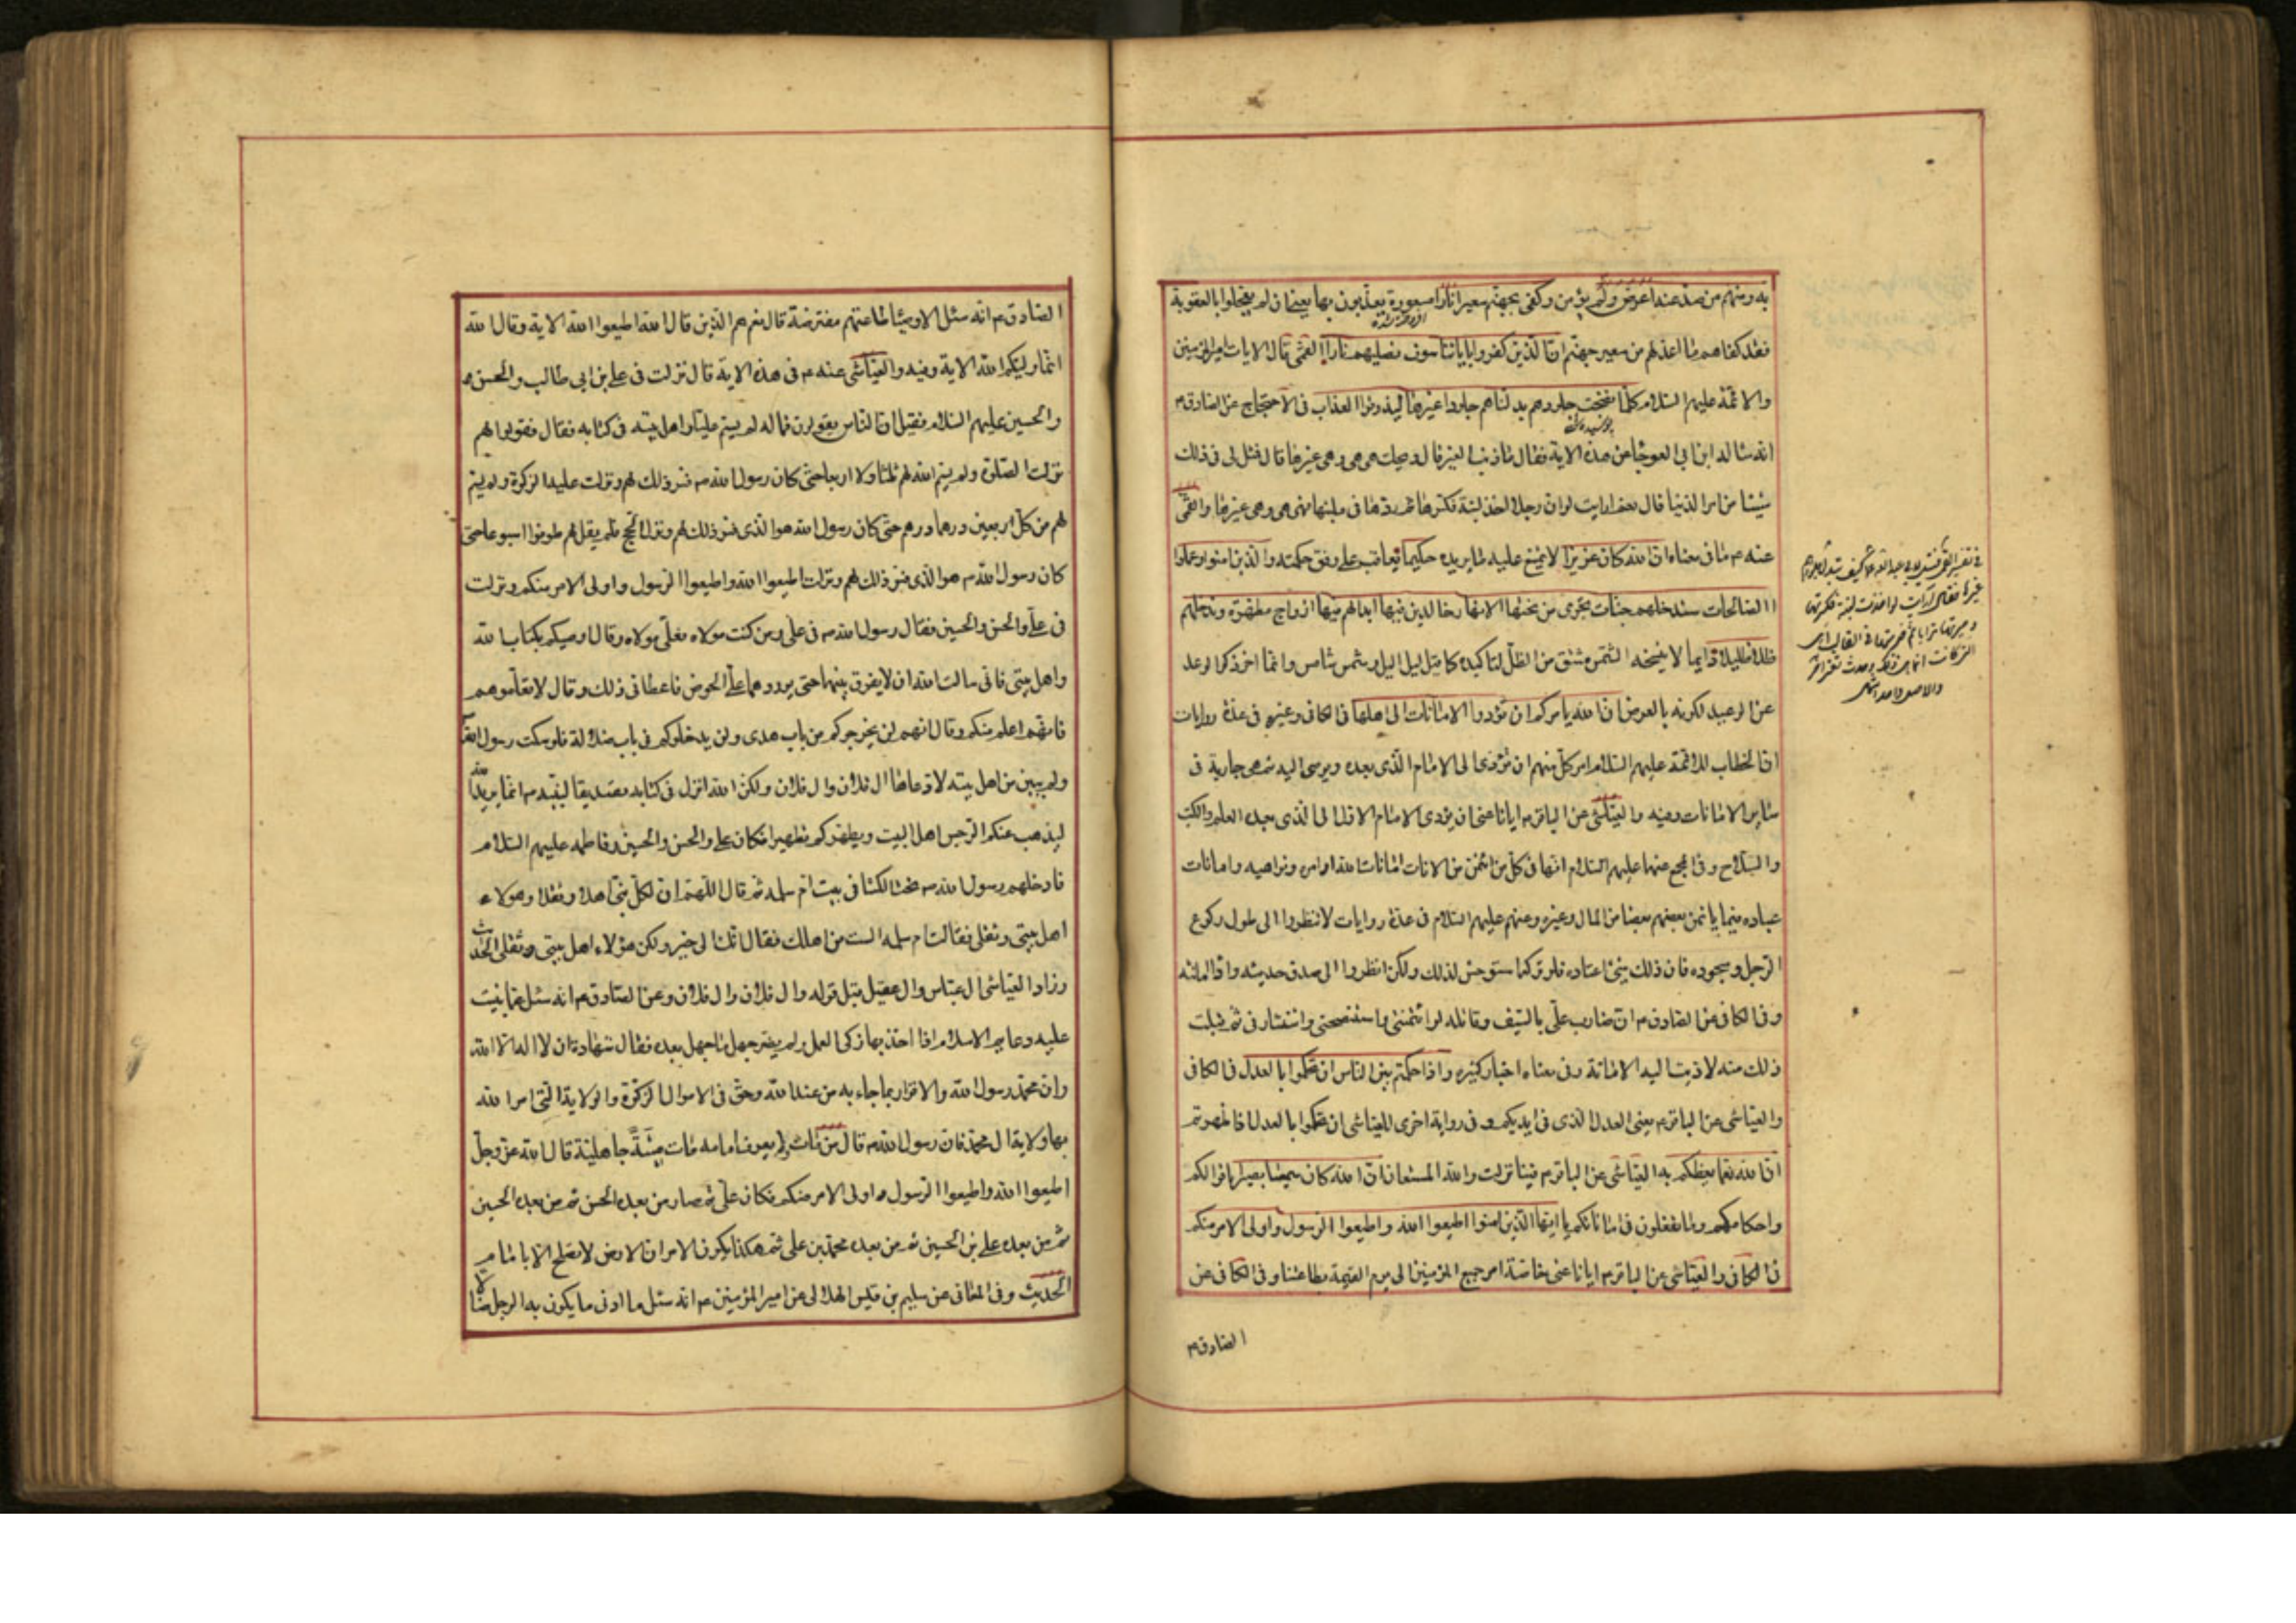 به ومنهم من صد عنه اعرض ولم يؤمن وكفى بجهنم سعيرا نارا مسعورة يعذبون بها يعني ان لم يعجلوا بالعقوبة
فقد كفاهم ما اعد لهم من سعير جهنم ان الذين كفروا باياتنا سوف نصليهم نارا القمي قال الايات امير المؤمنين
والائمة عليهم السلام كلما نضجت جلودهم بدلناهم جلودا غيرها ليذوقوا العذاب في الاحتجاج عن الصادق ع
انه ساله ابن ابي العوجا عن هذه الاية فقال ما ذنب الغير قال ويحك هي هي وهي غيرها قال فمثل لي في ذلك
شيئا من امر الدنيا قال نعم ارايت لو ان رجلا اخذ لبنة فكسرها ثم ردها في ملبنها فهي هي وهي غيرها والقمي
عنه ع ما في معناه ان الله كان عزيزا لا يمتنع عليه ما يريده حكيما يعاقب على وفق حكمته والذين امنوا وعملوا
الصالحات سندخلهم جنات تجري من تحتها الانهار خالدين فيها ابدا لهم فيها ازواج مطهرة وندخلهم
ظلا ظليلا دايما لا ينسخه الشمس مشتق من الظل لتاكيده كما قيل ليل اليل وشمس شامس وانما اخر ذكر الوعد
عن الوعيد لكونه بالعرض ان الله يامركم ان تؤدوا الامانات الى اهلها في الكافي وغيره في عدة روايات
ان الخطاب للائمة عليهم السلام امر كل منهم ان يؤدى الى الامام الذي بعده ويوصى اليه ثم هي جارية في
ساير الامانات وفيه والعياشي عن الباقر ع ايانا عنى ان يؤدى الامام الاول الى الذي بعده العلم والكتب
والسلاح وفي المجمع عنهما عليهم السلام انها في كل من ائتمن من الامانات امانات الله اوامره ونواهيه وامانات
عباده فيما ياتمن بعضهم بعضا من المال وغيره وعنهم عليهم السلام في عدة روايات لا تنظروا الى طول ركوع
الرجل وسجوده فان ذلك شئ اعتاده فلو تركه استوحش لذلك ولكن انظروا الى صدق حديثه واداء امانته
وفي الكافي عن الصادق ع ان ضارب علي بالسيف وقاتله لو ائتمنني واستنصحني واستشارني ثم قبلت
ذلك منه لاديت اليه الامانة وفي معناه اخبار كثيره واذا حكمتم بين الناس ان تحكموا بالعدل في الكافي
والعياشي عن الباقر ع يعني العدل الذي في ايديكم وفي رواية اخرى للعياشي ان تحكموا بالعدل اذا ظهرتم
ان الله نعما يعظكم به العياشي عن الباقر ع فينا نزلت والله المستعان ان الله كان سميعا بصيرا باقوالكم
واحكامكم وما تفعلون في اماناتكم يا ايها الذين امنوا اطيعوا الله واطيعوا الرسول واولى الامر منكم
في الكافي والعياشي عن الباقر ع ايانا عنى خاصة امر جميع المؤمنين الى يوم القيمة بطاعتنا وفي الكافي عن
الصادق ع
في تفسير القمي
غيرها فقال ارايت لو اخذت لبنة فكسرتها
وصيرتها ترابا ثم ضربتها في القالب اهي
التي كانت انما هي ذلك وحدث تغير اخر
والاصل واحد انتهى
الصادق ع انه سئل الاوصياء طاعتهم مفترضة قال نعم هم الذين قال الله اطيعوا الله الاية وقال الله
انما وليكم الله الاية وفيه والعياشي عنه ع في هذه الاية قال نزلت في علي بن ابي طالب والحسن
والحسين عليهم السلام فقيل ان الناس يقولون فما له لم يسم عليا واهل بيته في كتابه فقال فقولوا لهم
نزلت الصلوة ولم يسم الله لهم ثلثا ولا اربعا حتى كان رسول الله ص فسر ذلك لهم ونزلت عليه الزكوة ولم يسم
لهم من كل اربعين درهما درهم حتى كان رسول الله هو الذي فسر ذلك لهم ونزل الحج فلم يقل لهم طوفوا اسبوعا حتى
كان رسول الله ص هو الذي فسر ذلك لهم ونزلت اطيعوا الله واطيعوا الرسول واولى الامر منكم ونزلت
في علي والحسن والحسين فقال رسول الله ص في علي ومن كنت مولاه فعلي مولاه وقال اوصيكم بكتاب الله
واهل بيتي فاني سالت الله ان لا يفرق بينهما حتى يوردهما على الحوض فاعطاني ذلك وقال لا تعلموهم
فانهم اعلم منكم وقال انهم لن يخرجوكم من باب هدى ولن يدخلوكم في باب ضلالة فلو سكت رسول الله
ولم يبين من اهل بيته لادعاها ال فلان وال فلان ولكن الله انزل في كتابه تصديقا لنبيه ص انما يريد الله
ليذهب عنكم الرجس اهل البيت ويطهركم تطهيرا فكان علي والحسن والحسين وفاطمه عليهم السلام
فادخلهم رسول الله ص تحت الكساء في بيت ام سلمه ثم قال اللهم ان لكل نبي اهلا وثقلا وهولاء
اهل بيتي وثقلي فقالت ام سلمه الست من اهلك فقال انك الى خير ولكن هؤلاء اهل بيتي وثقلي الحديث
وزاد العياشي ال عباس وال عقيل قبل قوله وال فلان وال فلان وعن الصادق ع انه سئل عما بنيت
عليه دعايم الاسلام اذا اخذ بها زكى العمل ولم يضر جهل ما جهل بعده فقال شهادة ان لا اله الا الله
وان محمد رسول الله والاقرار بما جاء به من عند الله وحق في الاموال الزكوة والولاية التي امر الله
بها ولاية ال محمد فان رسول الله ص قال من مات ولم يعرف امامه مات ميتة جاهلية قال الله عز وجل
اطيعوا الله واطيعوا الرسول واولى الامر منكم فكان علي ثم صار من بعده الحسن ثم من بعده الحسين
ثم من بعده علي بن الحسين ثم من بعده محمد بن علي ثم هكذا يكون الامر ان الارض لا تصلح الا بامام
الحديث وفي المعاني عن سليم بن قيس الهلالي عن امير المؤمنين ع انه سئل ما ادنى ما يكون به الرجل ضالا